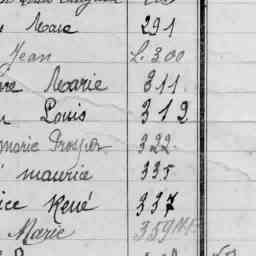 Marc 291
Jean L. 300
Marie 311
Louis 312
Marie Prosper 322
Maurice 335
René 337
Marie 359